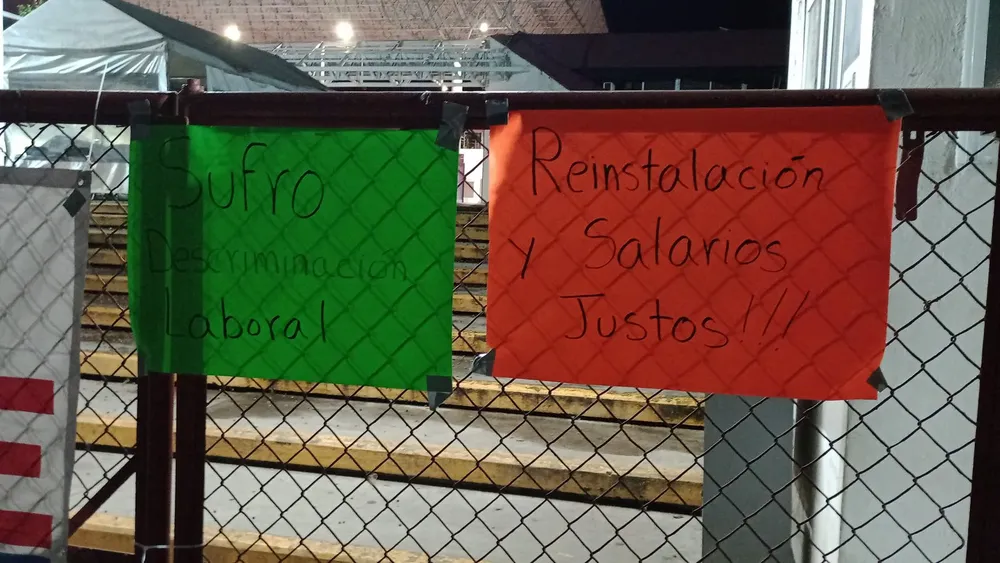 Sufro
Descriminación
Laboral
Reinstalación
y Salarios
Justos!!!